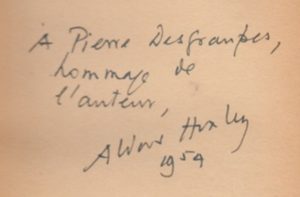 A Pierre Desgraupes,
hommage de
l'auteur,
Aldous Huxley
1954